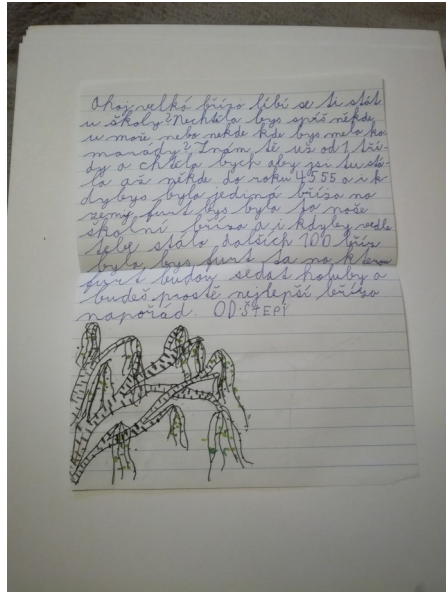 Ahoj velká břízo líbí se ti stát
u školy? Nechtěla bys spíš někde
u moře nebo někde kde bys měla ka-
marády? Znám tě už od 1 tří-
dy a chtěla bych aby jsi tu stá-
la až někde do roku 4555 a i k-
dybys byla jediná bříza na
zemi furt bys byla ta naše
školní bříza a i kdyby vedle
tebe stálo dalších 100 bříz
byla bys furt ta na kterou
furt budou sedat holuby a
budeš prostě nejlepší bříza
napořád. OD:ŠTEPI